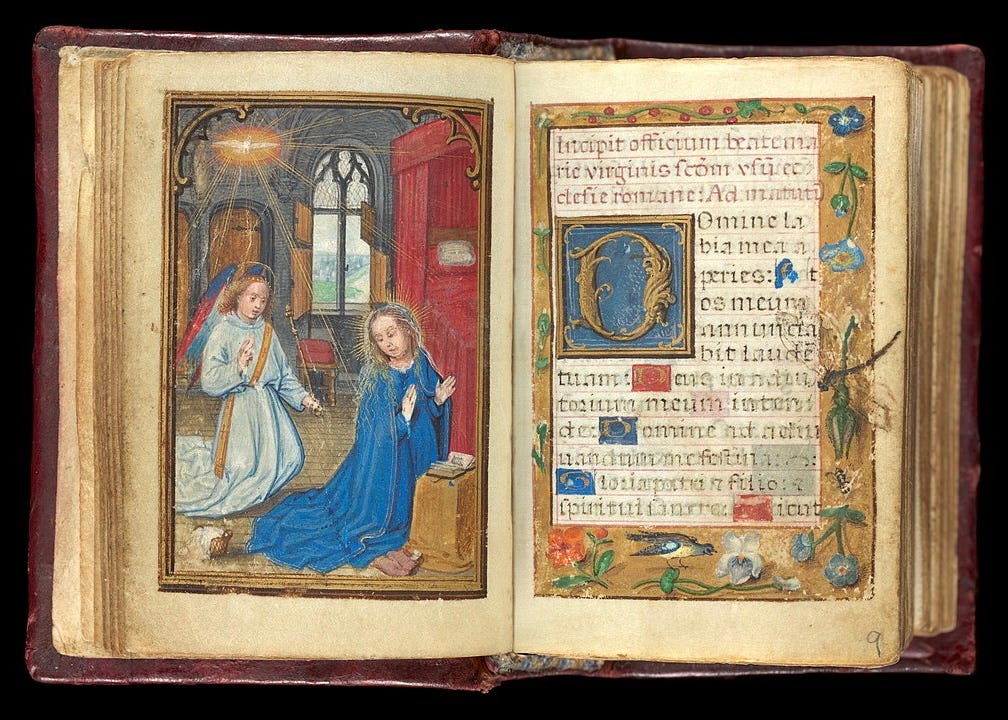 Incipit officium beate ma
rie virginis scd̄m vsū ec
clesie romane: Ad matuti
Domine la
bia mea a
peries: Et
os meum
annuncia
bit laudē
tuam: Deus in adiu
torium meum inten
de: Domine ad adiu
uandum me festina:
Gloria patri ⁊ filio: ⁊
spiritui sancto: Sicut
9